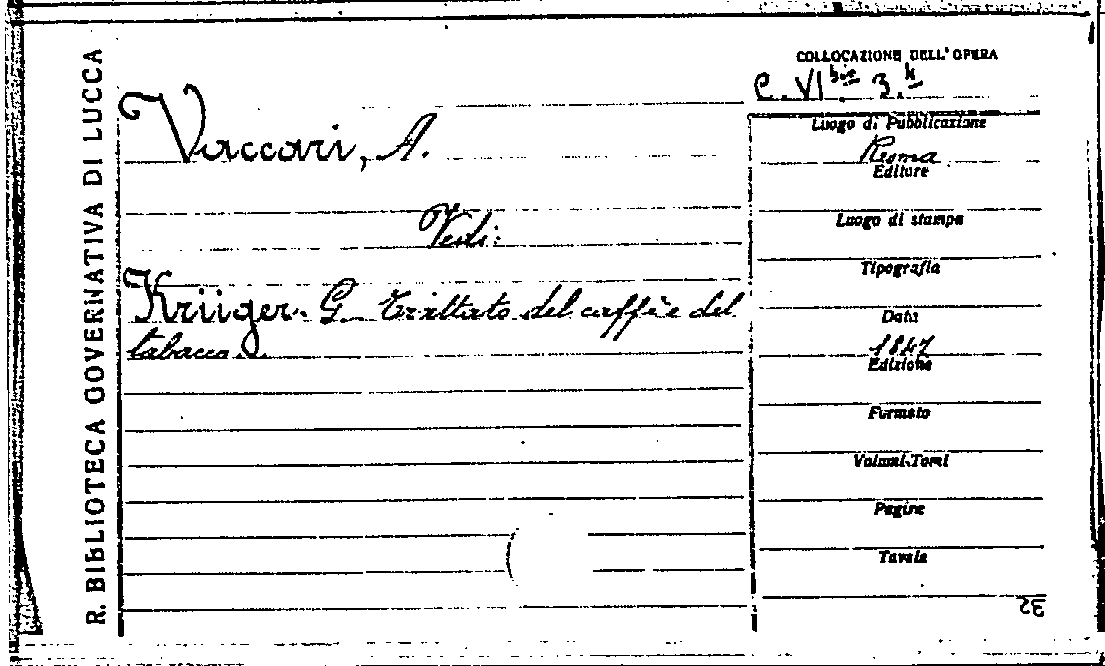 R. BIBLIOTECA GOVERNATIVA DI LUCCA
Vaccari, A.
Vedi:
Krüger. G. Trattato del caffè e del
tabacco.
COLLOCAZIONE DELL'OPERA
C. VI bis. 3.4
Luogo di Pubblicazione
Roma
Editore
Luogo di stampa
Tipografia
Data
1847
Edizione
Formato
Volumi-Tomi
Pagine
Tavole
32